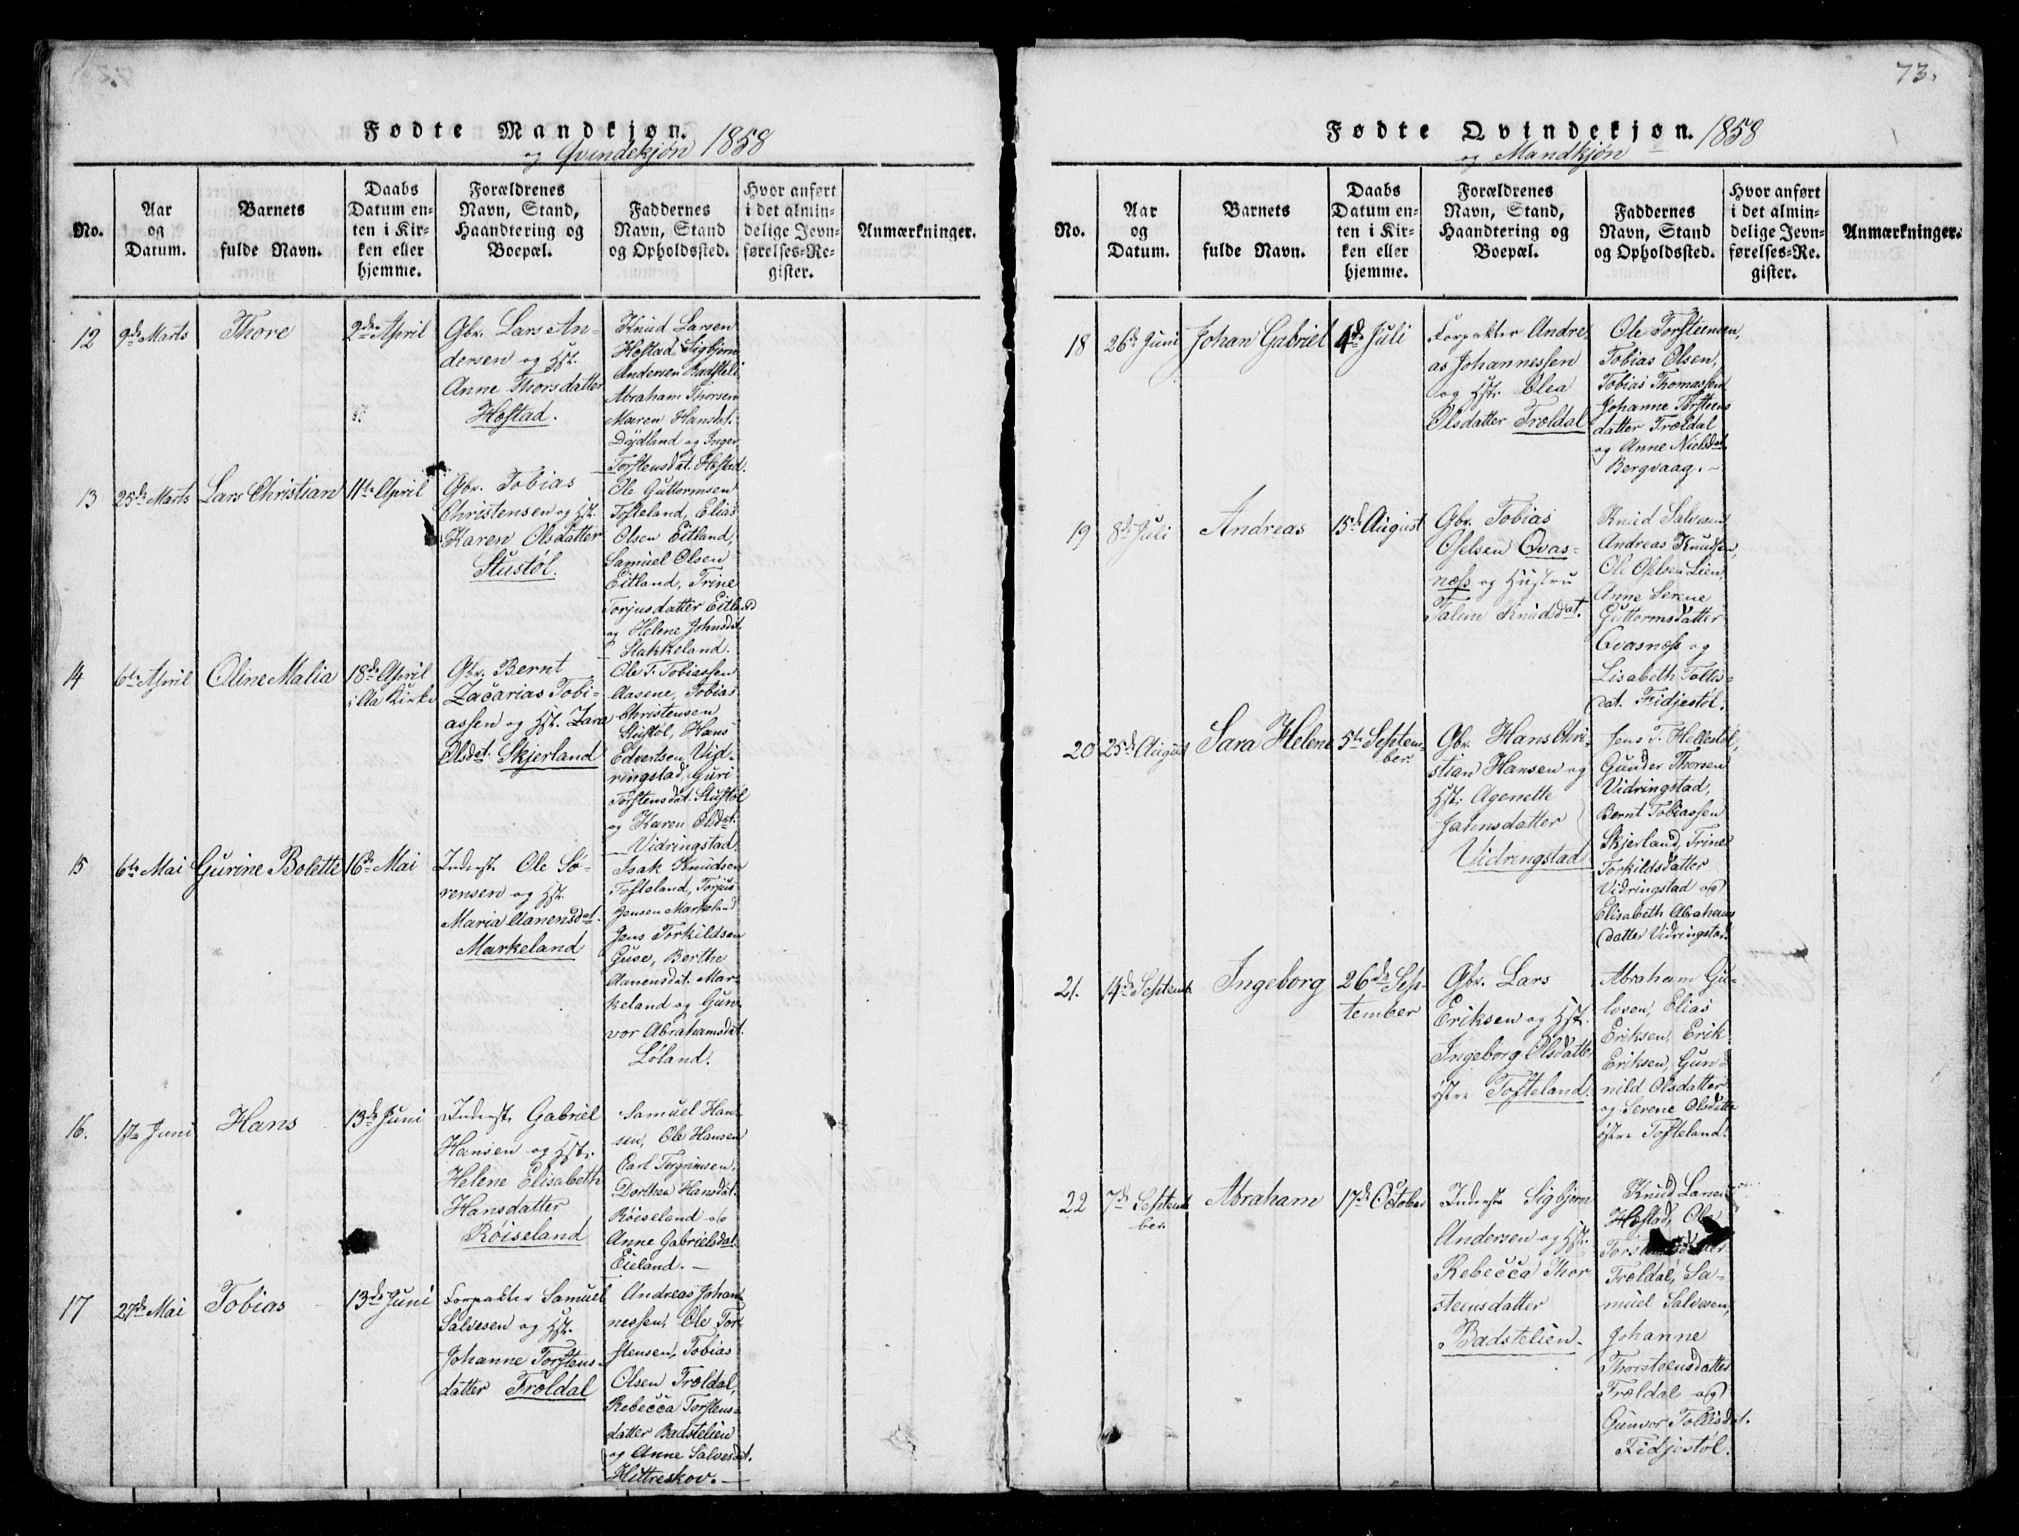 73.
Fødte Mandkjøn. 1858
og Qvindekjøn
No.
Aar
og
Datum.
Barnets
fulde Navn.
Daabs
Datum en-
ten i Kir-
ken eller
hjemme.
Forældrenes
Navn, Stand,
Haandtering og
Boepæl.
Faddernes
Navn, Stand
og Opholdssted.
Hvor anført
i det almin-
delige Jevn-
førelses-Re-
gister.
Anmærkninger.
12
9de Marts
Thore
2den April
Gbr. Lars An-
dersen og Hst.
Anne Thorsdatter
Hofstad.
Knud Larsen
Hofstad, Sigbjørn
Andersen Badsteli
Abraham Thorsen
Maren Hansdt.
Dydland og Inger
Torstensdat. Hofstad.
13
25de Marts
Lars Christian
11te April
Gbr. Tobias
Christensen og Hst.
Karen Olsdatter
Stustøl.
Ole Guttormsen
Tofteland, Elias
Olsen Eitland,
Samuel Olsen
Eitland, Trine
Torjusdatter Eitland
og Helene Johnsdat.
Stakkeland.
14
6te April
Oline Malia
18de April
i Aa Kirke
Gbr. Bernt
Zacarias Tobi-
assen og Hst. Zara
Olsdat. Skjerland
Ole T. Tobiassen
Aasene, Tobias
Christensen
Stustøl, Hans
Edvertsen Vid-
ringstad, Guri
Torstensdat. Stustøl
og Karen Olsdat.
Vidringstad.
15
6te Mai
Gurine Bolette
16de Mai
Inderst Ole Sø-
rensen og Hst.
Maria Aanensdat.
Markeland
Isak Knudsen
Tofteland, Torjus
Jensen Markeland
Jens Torkildsen
Guse, Berthe
Aanensdat. Mar-
keland og Gun-
vor Abrahamsdat.
Løland.
16.
1ste Juni
Hans
13de Juni
Inderst Gabriel
Hansen og Hst.
Helene Elisabeth
Hansdatter
Røiseland
Samuel Han-
sen, Ole Hansen
Carl Tergrimsen,
Dorthea Hansdat.
Røiseland og
Anne Gabrielsdat.
Eieland.
17
27de Mai
Tobias
13de Juni
Forpakter Samuel
Salvesen og Hst.
Johanne Torstens-
datter Trældal
Andreas Johan-
nessen, Ole Tor-
stensen, Tobias
Olsen Trældal,
Rebecca Torstens-
datter Badstelien
og Anne Salvesdat.
Hittreskov.
Fødte Qvindekjøn. 1858
og Mandkjøn
No.
Aar
og
Datum.
Barnets
fulde Navn.
Daabs
Datum en-
ten i Kir-
ken eller
hjemme.
Forældrenes
Navn, Stand,
Haandtering og
Boepæl.
Faddernes
Navn, Stand
og Opholdssted.
Hvor anført
i det almin-
delige Jevn-
førelses-Re-
gister.
Anmærkninger.
18
26de Juni
Johan Gabriel
4de Juli
Forpakter Andre-
as Johannessen
og Hst. Olea
Olsdatter Trældal
Ole Torsteensen,
Tobias Olsen,
Tobias Thomassen
Johanne Torsteens
datter Trældal
og Anne Nielsdat.
Bergvaag.
19
8de Juli
Andreas
15de August
Gbr. Tobias
Oselsen Qvas-
næss og Hustru
Talene Knudsdat.
Knud Salvesen
Andreas Knudsen,
Ole Oselsen Lien,
Anne Serene
Guttormsdatter
Qvasnæss og
Lisabeth Tollis-
dat. Fidjestøl.
20
25de August
Sara Helene
5te Septem-
ber.
Gbr. Hans Chri-
stian Hansen og
Hst. Agenette
Jahnsdatter
Vidringstad
Jens T. Hellestøl,
Gunder Thorsen
Vidringstad,
Bernt Tobiassen
Skjerland, Trine
Torkildsdatter
Vidringstad og
Elisabeth Abrahams
datter Vidringstad.
21.
14de Septemb.
Ingeborg
26de Sep-
tember
Gbr. Lars
Eriksen og Hst.
Ingeborg Olsdatter
østre Tofteland.
Abraham Gu-
lovsen, Elias
Eriksen, Erik
Eriksen, Gun-
nild Olsdatter
og Serene Olsdatter
østre Tofteland.
22
7de Septem-
ber.
Abraham
17de October
Inderst Sigbjørn
Andersen og Hst.
Rebecca Thor
steensdatter
Badstelien.
Knud Larsen
Hofstad, Ole
Trældal, Sa-
muel Salvesen,
Johanne
Thorsteensdatter
Trældal og
Gunvor Tollisdat.
Fidjestøl.